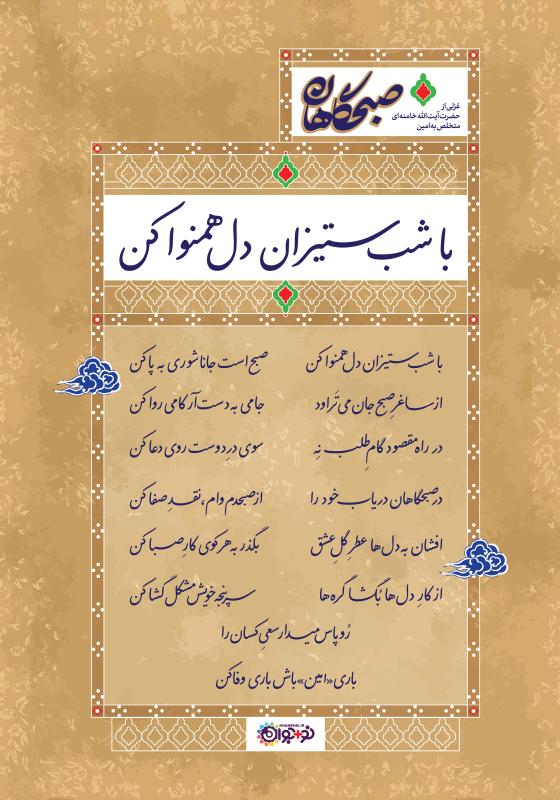 صبحگاهان
غزلی از
حضرت آیت‌الله خامنه‌ای
متخلص به امین
با شب ستیزان دل همنوا کن
با شب ستیزان دل همنوا کن صبح است جانا شوری به پا کن
از ساغرِ صبح جان می‌تَراود جامی به دست آر کامی روا کن
در راه مقصود گامِ طلب نِه سوی درِ دوست روی دعا کن
در صبحگاهان دریاب خود را از صبحدم وام، نقدِ صفا کن
افشان به دل‌ها عطرِ گلِ عشق بگذر به هر کوی کارِ صبا کن
از کارِ دل‌ها بُگشا گره‌ها سرپنجه خویش مشکل گشا کن
رُو پاس میدار سعیِ کسان را
باری «امین» باش باری وفا کن
KHAMENEI.IR
نو+جوان